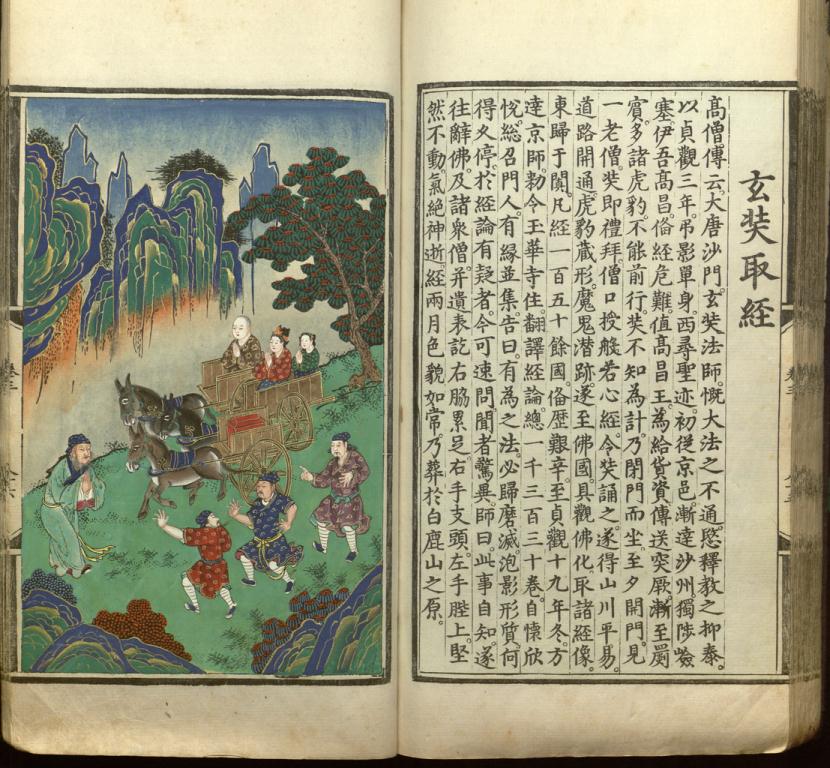 玄奘取經
高僧傳云。大唐沙門玄奘法師。慨大法之不通。愍釋教之抑泰。
以貞觀三年。弔影單身。西尋聖迹。初從京邑。漸達沙州。獨陟嶮
塞。伊吾高昌。俻經危難。值高昌王。為給貲資傳送突厥。漸至罽
賓。多諸虎豹。不能前行。奘不知為計。乃閉門而坐。至夕開門。見
一老僧。奘即禮拜。僧口授般若心經。令奘誦之。遂得山川平易。
道路開通。虎豹藏形。魔鬼潛跡。遂至佛國。具觀佛化。取諸經像。
東歸于闐。凡經一百五十餘國。俻歷艱辛。至貞觀十九年冬。方
達京師。勑令玉華寺住。翻譯經論。總一千三百三十卷。自懷欣
悅。總召門人。有緣並集。告曰。有為之法。必歸磨滅。泡影形質。何
得久停。於經論有疑者。今可速問。聞者驚異。師曰。此事自知。遂
往辭佛。及諸衆僧。并遺表訖。右脇累足。右手支頭。左手䏶上。堅
然不動。氣絕神逝。經兩月。色貌如常。乃葬於白鹿山之原。